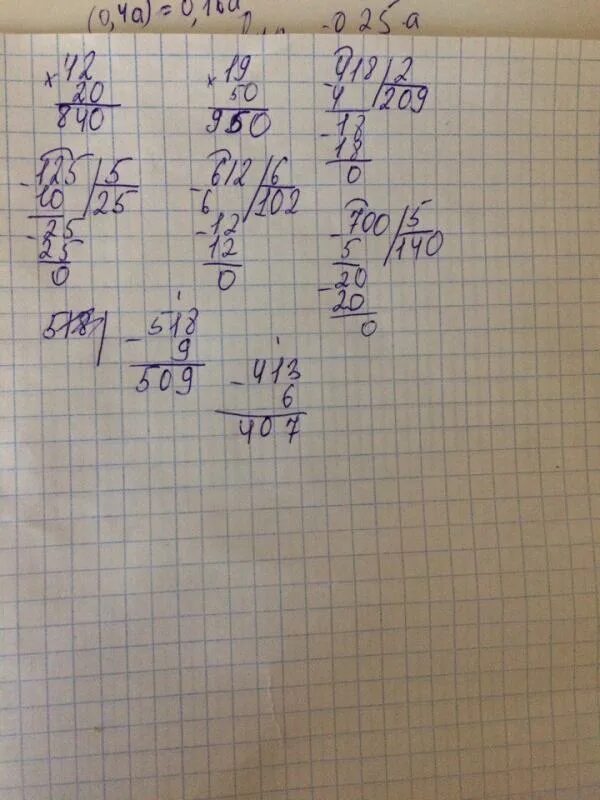 (0,4a) = 0,16a
0,25a
× 42
20
840
× 19
50
950
- 418 | 2
4 209
- 18
18
0
- 125 | 5
10 25
- 25
25
0
- 612 | 6
6 102
- 12
12
0
- 700 | 5
5 140
- 20
20
0
1
- 518
9
509
1
- 413
6
407